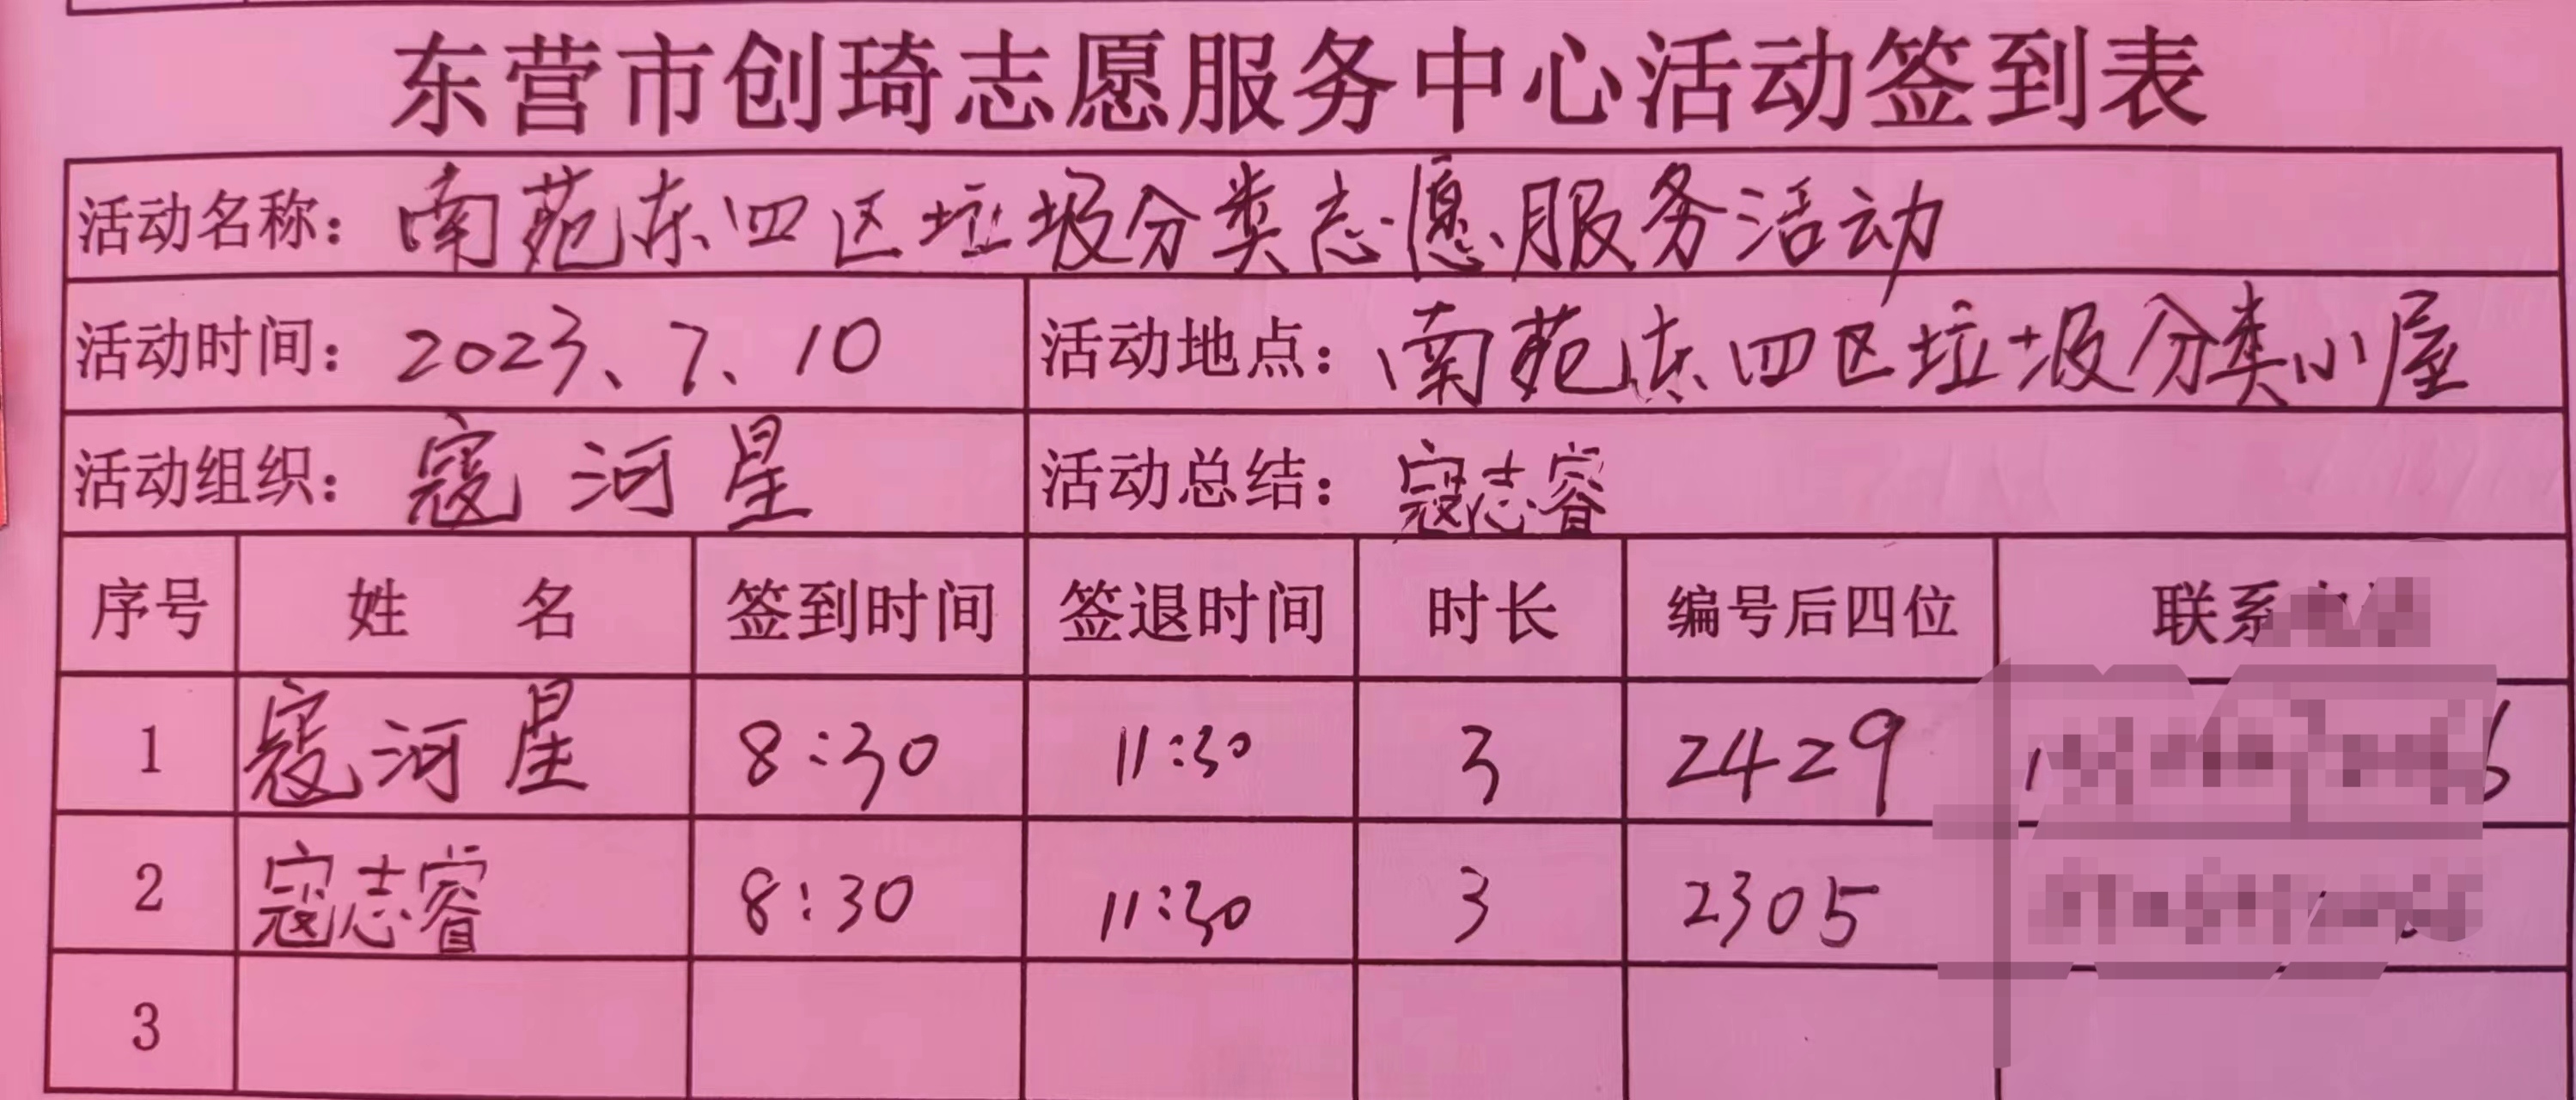 东营市创琦志愿服务中心活动签到表
活动名称：南苑东四区垃圾分类志愿服务活动
活动时间：2023、7、10 活动地点：南苑东四区垃圾分类小屋
活动组织：寇河星 活动总结：寇志睿
序号 姓名 签到时间 签退时间 时长 编号后四位 联系
1 寇河星 8:30 11:30 3 2429
2 寇志睿 8:30 11:30 3 2305
3